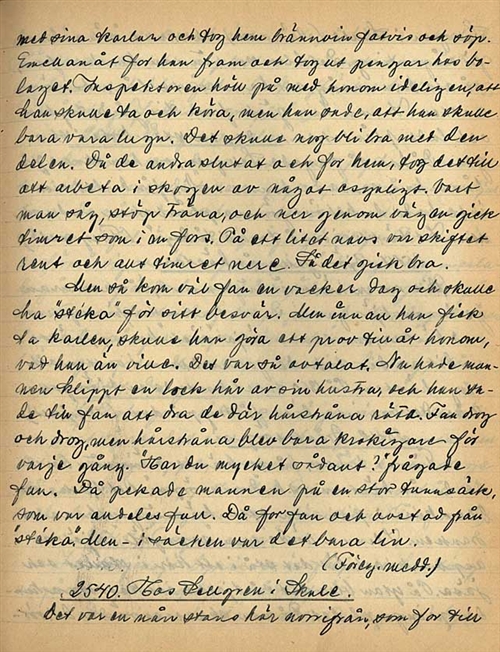 med sina karlar och tog hem brännvin fatvis och söp.
Emellanåt for han fram och tog ut pengar hos bo-
laget. Inspektoren höll på med honom ideligen, att
han skulle ta och köra, men han sade, att han skulle
bara vara lugn. Det skulle nog bli bra med den
delen. Då de andra slutat och for hem, tog det till
att arbeta i skogen av något osynligt. Vart
man såg, stöp träna, och ner genom vägen gick
timret som i en fors. På ett litet navs var skiftet
rent och allt timret nere. Så det gick bra.
Men så kom väl fan en vacker dag och skulle
ha "stöka" för sitt besvär. Men innan han fick
ta karlen, skulle han göra ett prov till åt honom,
vad han än ville. Det var så avtalat. Nu hade man-
nen klippt en lock hår av sin hustru, och han sa-
de till fan att dra de där hårstråna räta. Fan drog
och drog, men hårstråna blev bara krokigare för
varje gång. "Har du mycket sådant?" frågade
fan. Då pekade mannen på en stor tunnsäck,
som var alldeles full. Då for fan och avstod från
"stöka". Men - i säcken var det bara lin.
(Föreg. medd.)
2540. Hos Sellgren i Skule.
Det var en nån stans här norrifrån, som for till